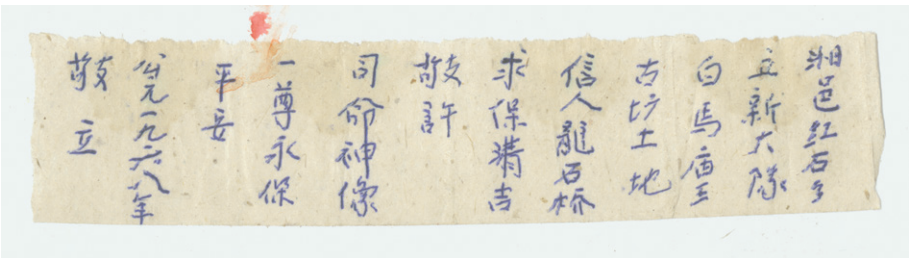 湘邑红石乡
立新大隊
白馬庙王
古坊土地
信人龍石桥
求保清吉
敬許
司命神像
一尊永保
平安
公元一九六八年
敬立